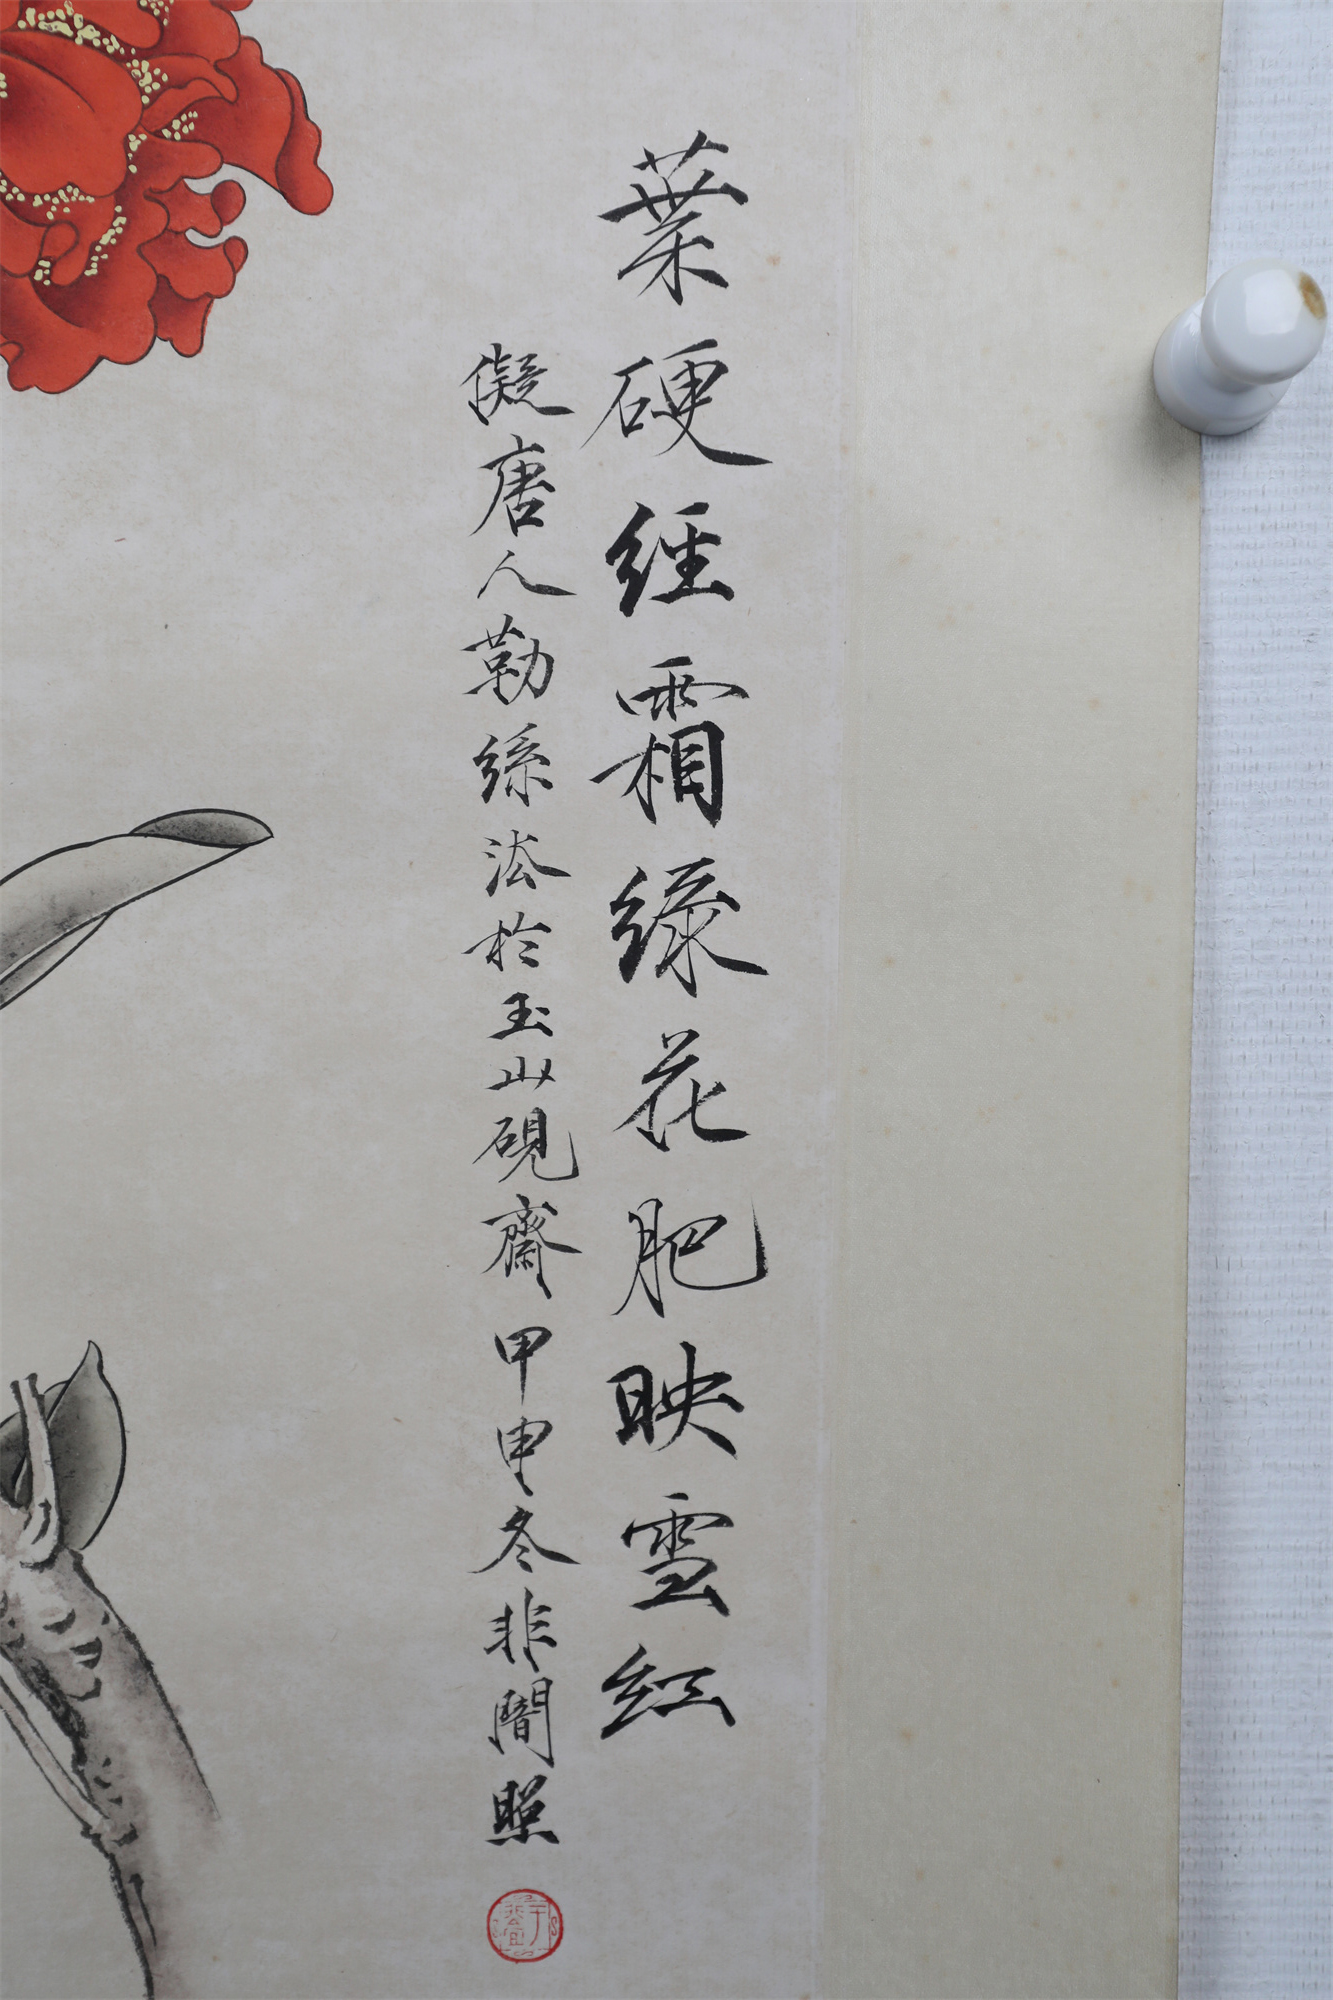 葉硬經霜綠花肥映雪紅
儗唐人勒絲法於玉山硯齋甲申冬非闇照